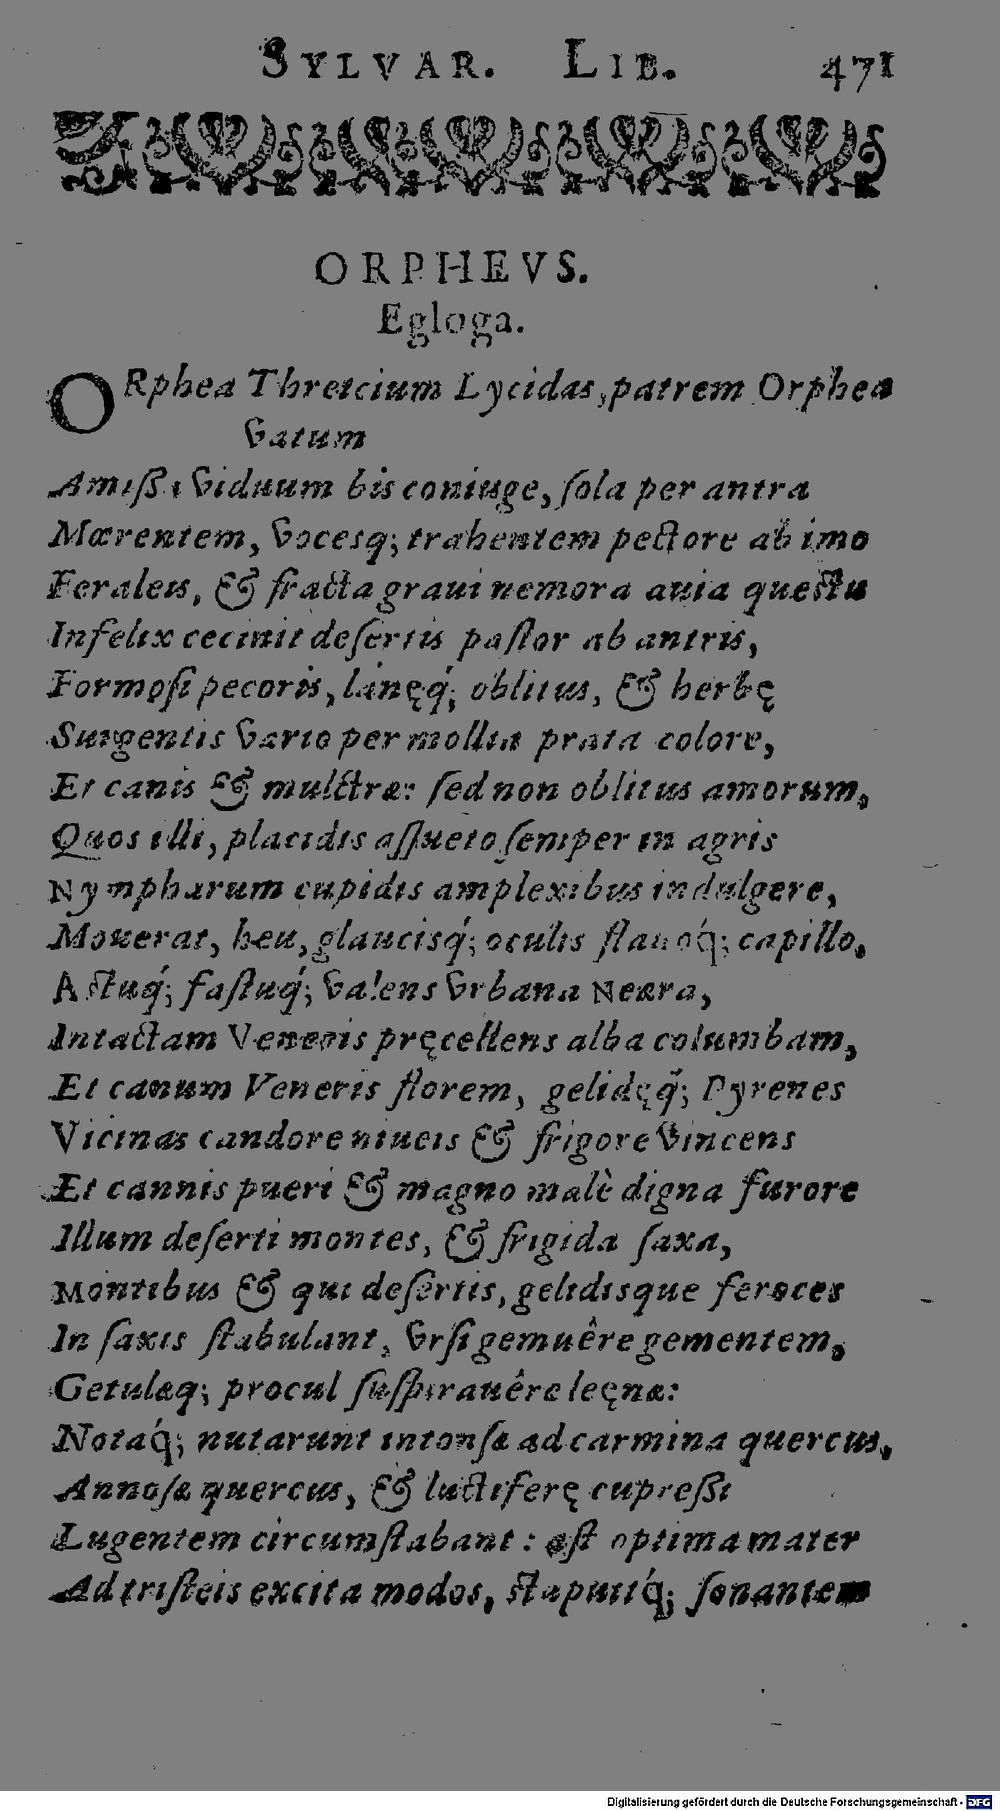 SYLVAR. LIB. 471
ORPHEVS.
Egloga.
ORphea Threicium Lycidas, patrem Orphea
vatum
Amiſſa viduum bis coniuge, ſola per antra
Mœrentem, vocesq́; trahentem pectore ab imo
Feraleis, & fracta graui nemora auia queſtu
Infelix cecinit deſertis paſtor ab antris,
Formoſi pecoris, lanęq́; oblitus, & herbę
Surgentis vario per mollia prata colore,
Et canis & mulctræ: ſed non oblitus amorum,
Quos illi, placidis aſſueto ſemper in agris
Nympharum cupidis amplexibus indulgere,
Mouerat, heu, glaucisq́; oculis flauoq́; capillo,
Aſtuq́; faſtuq́; valens vrbana Neæra,
Intactam Veneris pręcellens alba columbam,
Et canum Veneris florem, gelidęq́; Pyrenes
Vicinas candore niueis & frigore vincens
Et cannis pueri & magno malè digna furore
Illum deſerti montes, & frigida ſaxa,
Montibus & qui deſertis, gelidisque feroces
In ſaxis ſtabulant, vrſi gemuêre gementem,
Getulæq; procul ſuſpirauêre leęnæ:
Notaq́; nutarunt intonſæ ad carmina quercus,
Annoſæ quercus, & luctiferę cupreſſi
Lugentem circumſtabant: aſt optima mater
Ad triſteis excita modos, ſtapuitq́; ſonantem
Digitalisierung gefördert durch die Deutsche Forschungsgemeinschaft - DFG